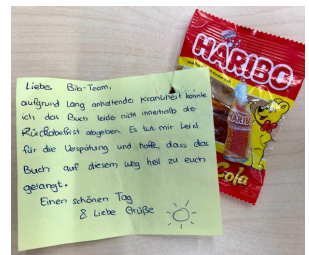 Liebes Bib-Team,
aufgrund lang anhaltende Krankheit konnte
ich das Buch leide nicht innerhalb de
Rückgabefrist abgeben. Es tut mir Leid
für die Verspätung und hoffe, dass das
Buch auf diesem Weg heil zu euch
gelangt.
Einen schönen Tag
& Liebe Grüße
HARIBO
HARIBO
Cola